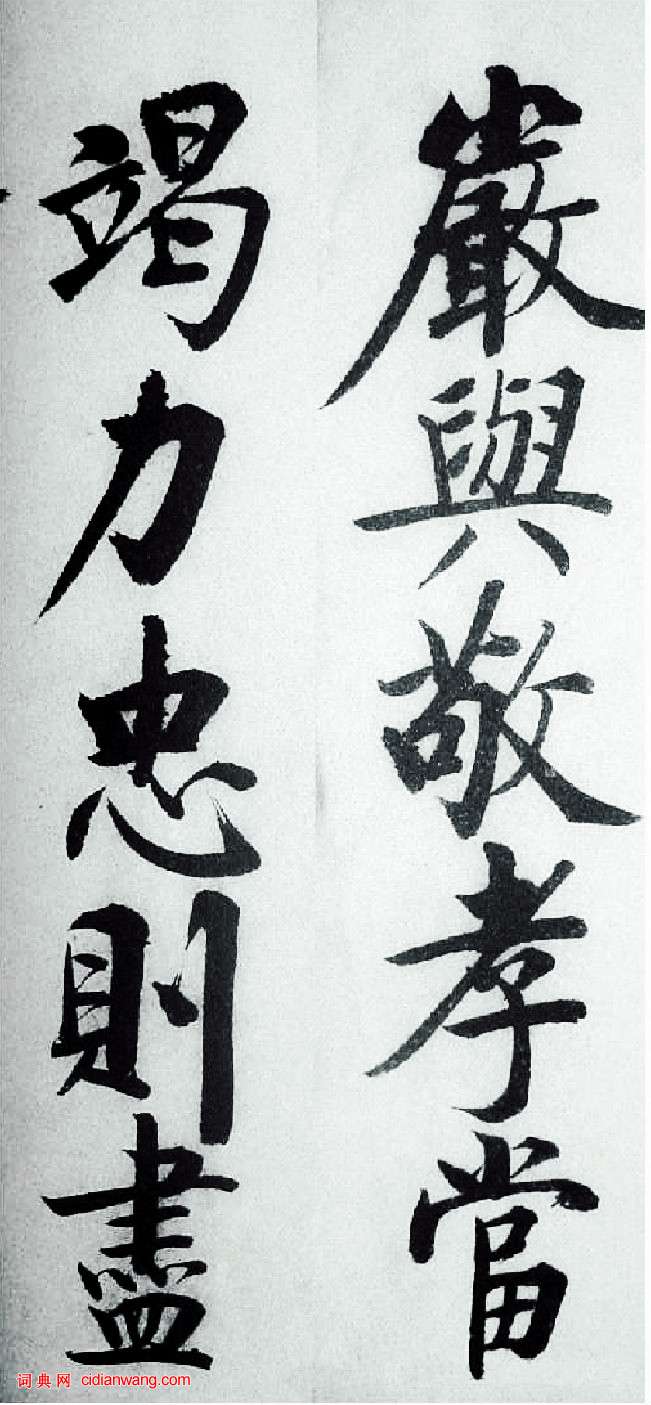 嚴與敬孝當
竭力忠則盡
词典网 cidianwang.com